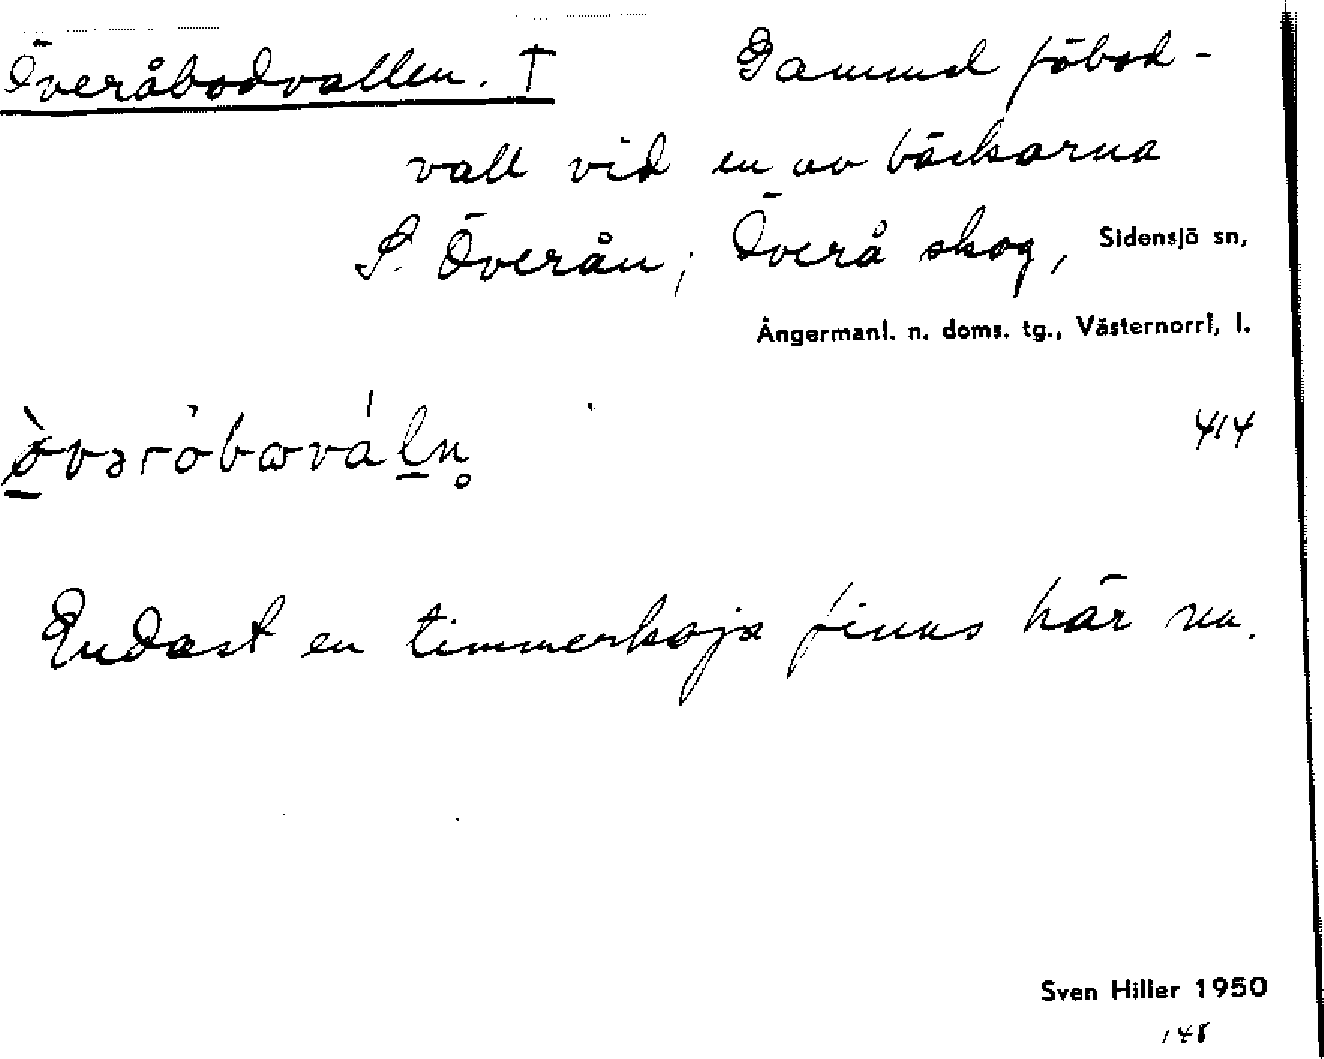 Överåbodvallen. † Gammal fäbod-
vall vid en av bäckarna
S. Överån; Överå skog, Sidensjö sn,
Ångermanl. n. doms. tg., Västernorrl, l.
414
Endast en timmerkoja finns här nu.
Sven Hiller 1950
148